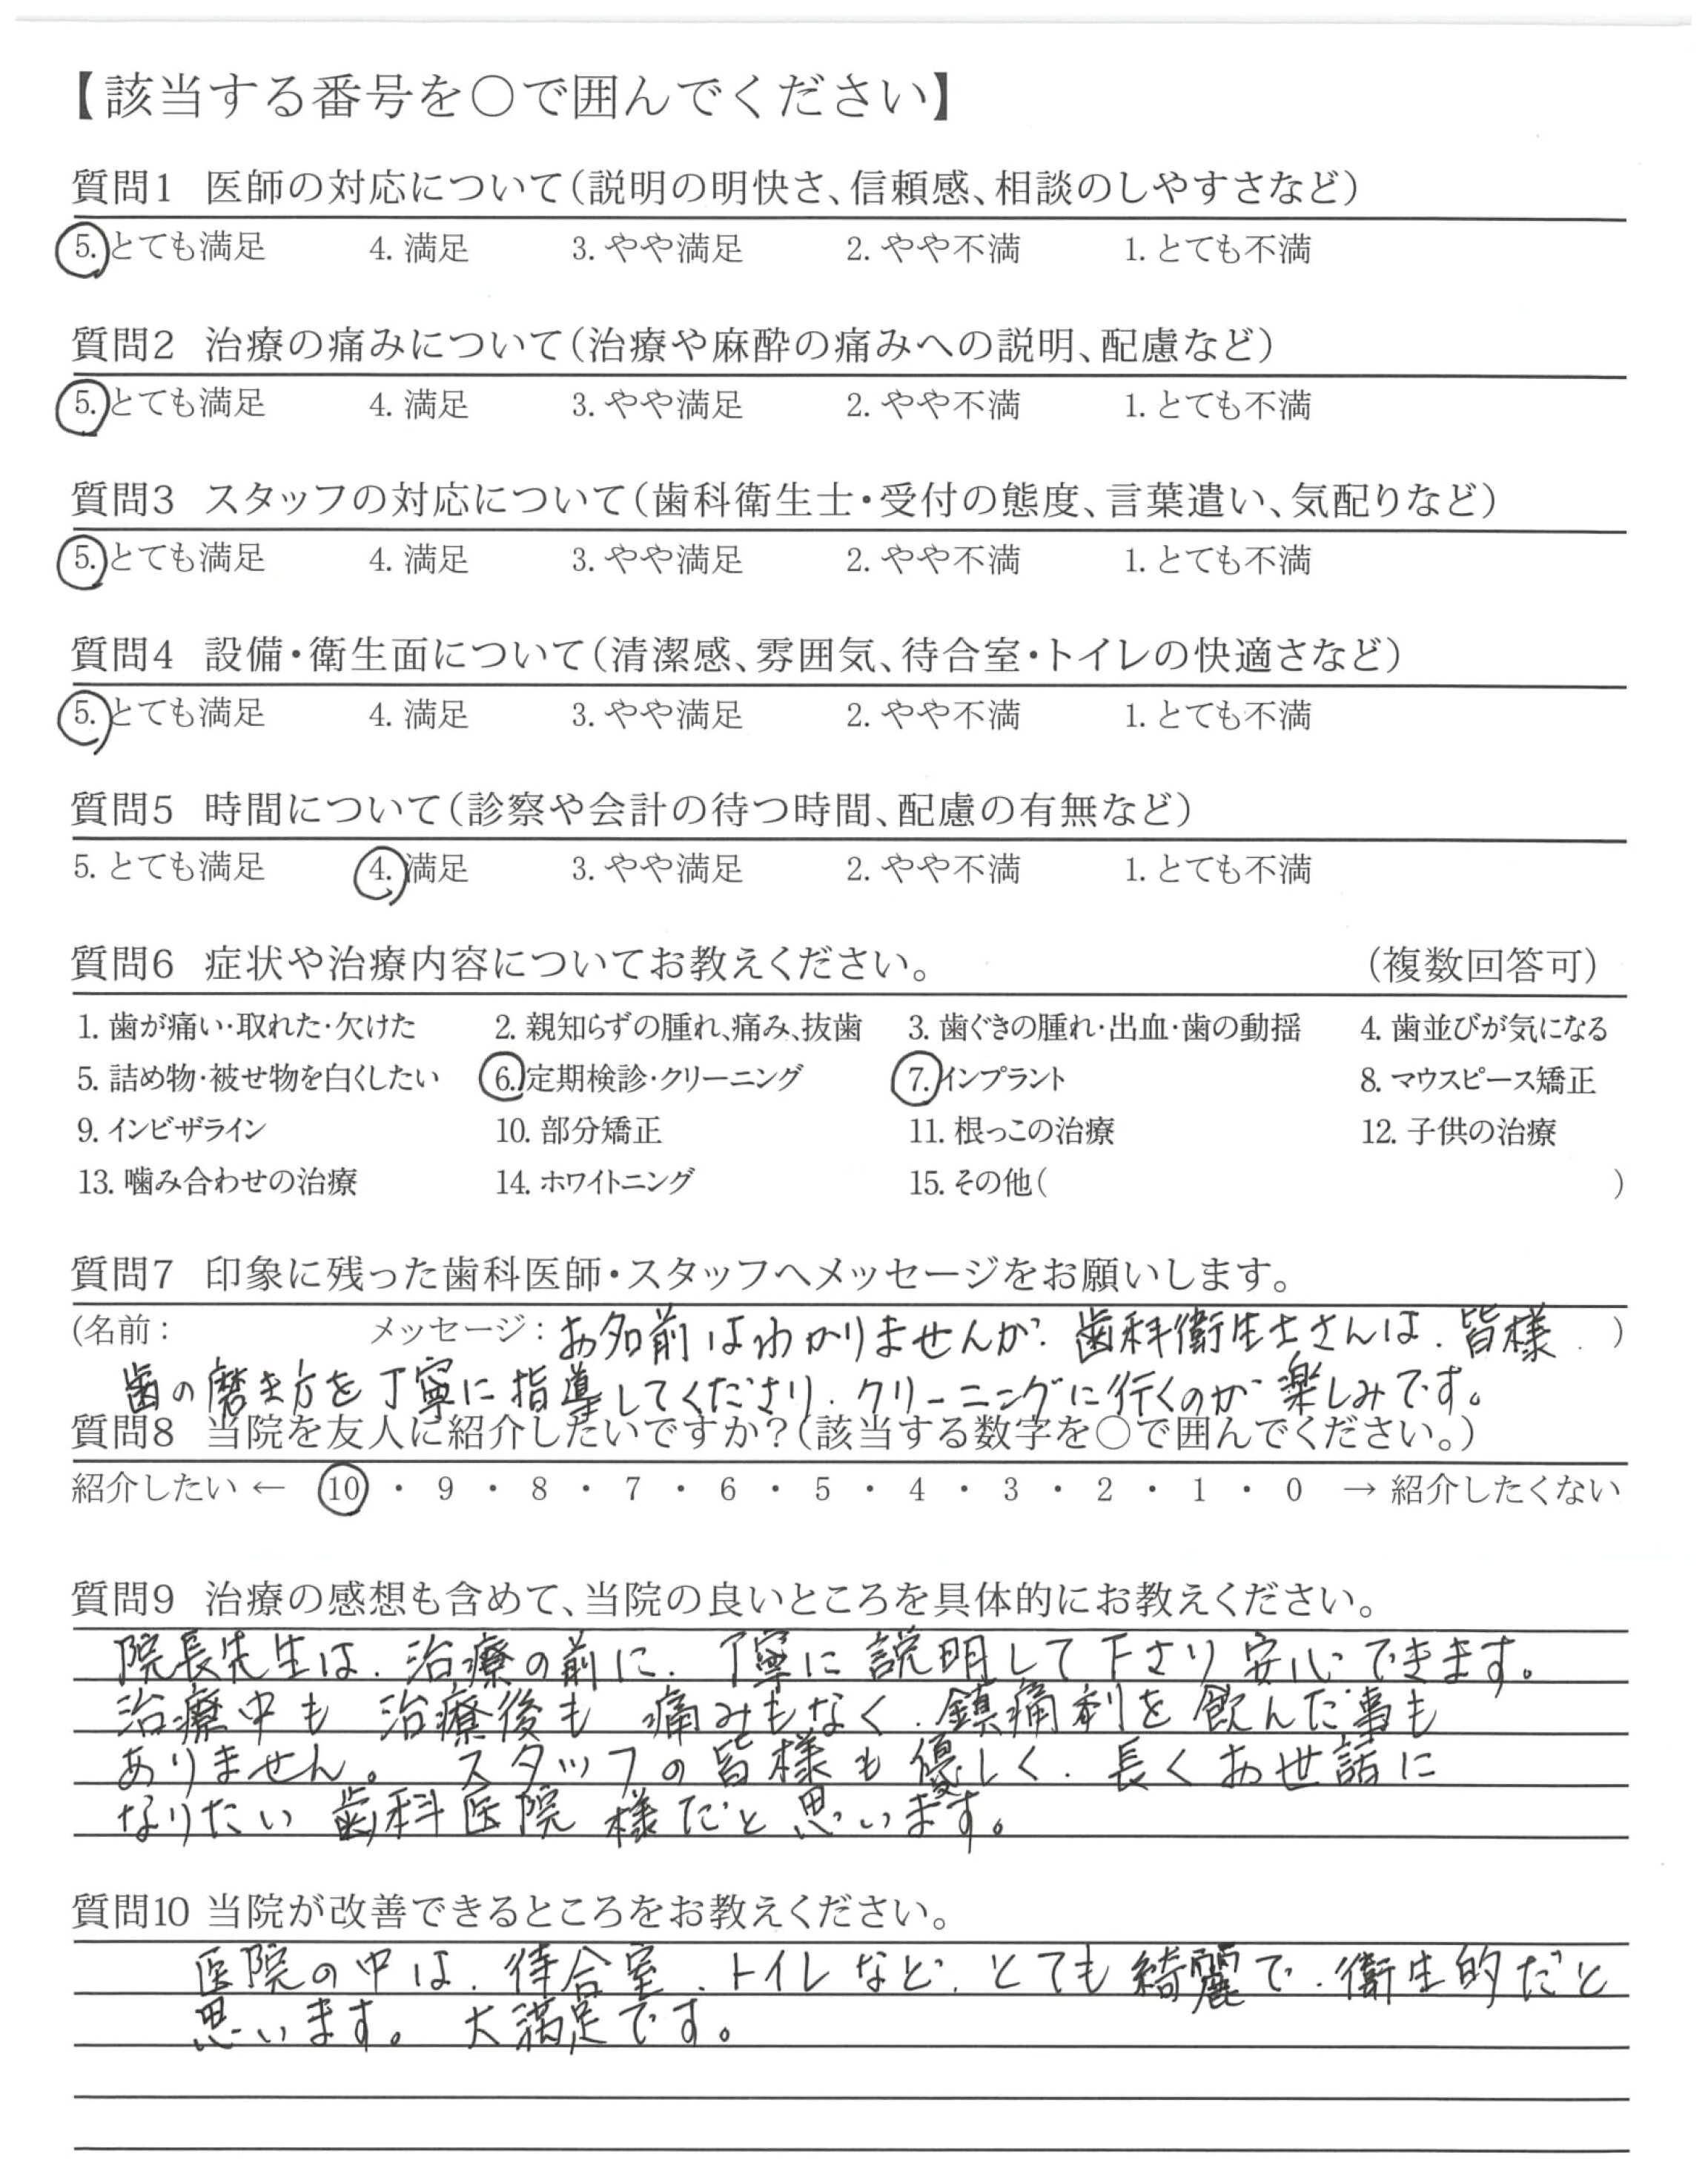 【該当する番号を○で囲んでください】
質問1 医師の対応について(説明の明快さ、信頼感、相談のしやすさなど)
5. とても満足 4. 満足 3. やや満足 2. やや不満 1. とても不満
質問2 治療の痛みについて(治療や麻酔の痛みへの説明、配慮など)
5. とても満足 4. 満足 3. やや満足 2. やや不満 1. とても不満
質問3 スタッフの対応について(歯科衛生士・受付の態度、言葉遣い、気配りなど)
5. とても満足 4. 満足 3. やや満足 2. やや不満 1. とても不満
質問4 設備・衛生面について(清潔感、雰囲気、待合室・トイレの快適さなど)
5. とても満足 4. 満足 3. やや満足 2. やや不満 1. とても不満
質問5 時間について(診察や会計の待つ時間、配慮の有無など)
5. とても満足 4. 満足 3. やや満足 2. やや不満 1. とても不満
質問6 症状や治療内容についてお教えください。 (複数回答可)
1. 歯が痛い・取れた・欠けた 2. 親知らずの腫れ、痛み、抜歯 3. 歯ぐきの腫れ・出血・歯の動揺 4. 歯並びが気になる
5. 詰め物・被せ物を白くしたい 6. 定期検診・クリーニング 7. インプラント 8. マウスピース矯正
9. インビザライン 10. 部分矯正 11. 根っこの治療 12. 子供の治療
13. 噛み合わせの治療 14. ホワイトニング 15. その他( )
質問7 印象に残った歯科医師・スタッフへメッセージをお願いします。
(名前: メッセージ:お名前はわかりませんが、歯科衛生士さんは、皆様 )
歯の磨き方を丁寧に指導してくださり、クリーニングに行くのが楽しみです。
質問8 当院を友人に紹介したいですか?(該当する数字を○で囲んでください。)
紹介したい ← 10 ・ 9 ・ 8 ・ 7 ・ 6 ・ 5 ・ 4 ・ 3 ・ 2 ・ 1 ・ 0 → 紹介したくない
質問9 治療の感想も含めて、当院の良いところを具体的にお教えください。
院長先生は、治療の前に、丁寧に説明して下さり安心できます。
治療中も治療後も痛みもなく、鎮痛剤を飲んだ事も
ありません。 スタッフの皆様も優しく、長くお世話に
なりたい歯科医院様だと思います。
質問10 当院が改善できるところをお教えください。
医院の中は、待合室、トイレなど、とても綺麗で、衛生的だと
思います。 大満足です。